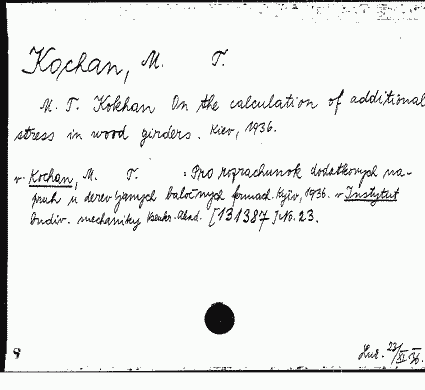 Kochan, M. T.
M. T. Kokhan On the calculation of additional
stress in wood girders. Kiev, 1936.
v. Kochan, M. T. : Pro rozrachunok dodatkovych na-
pruh u derevjanych baločnych formach. Kyïv, 1936. v Instytut
budiv. mechaniky Vseukr. Akad. [131387] No. 23.
8
23/XI 36.